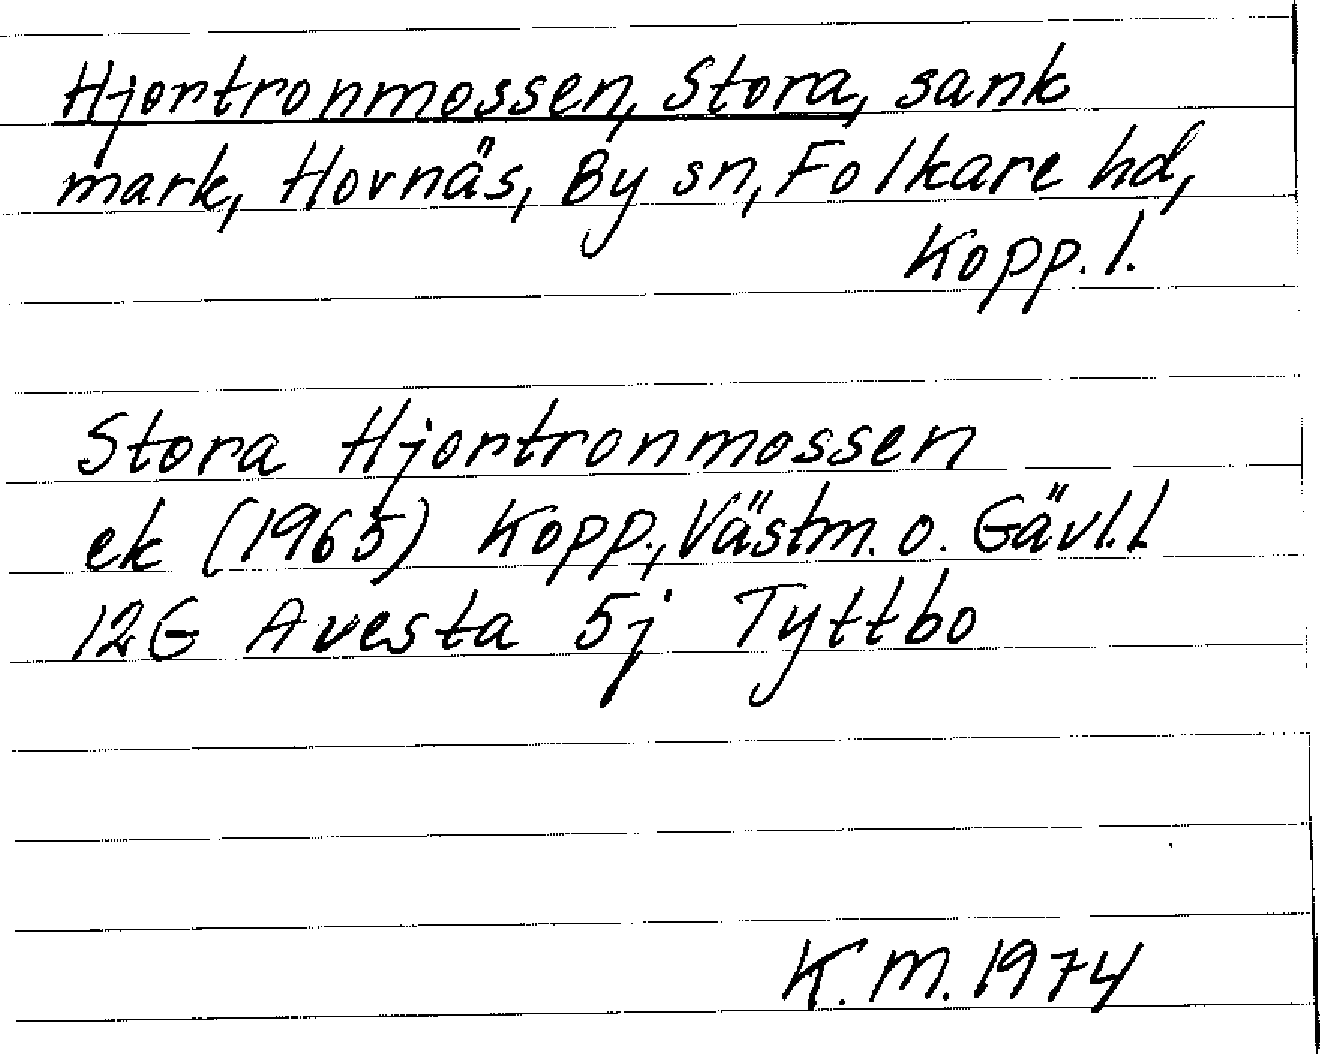 Hjortronmossen, Stora, sank
mark, Hovnäs, By sn, Folkare hd,
Kopp. l.
Stora Hjortronmossen
ek (1965) Kopp., Västm. o. Gävl. l
12G Avesta 5j Tyttbo
K. M. 1974